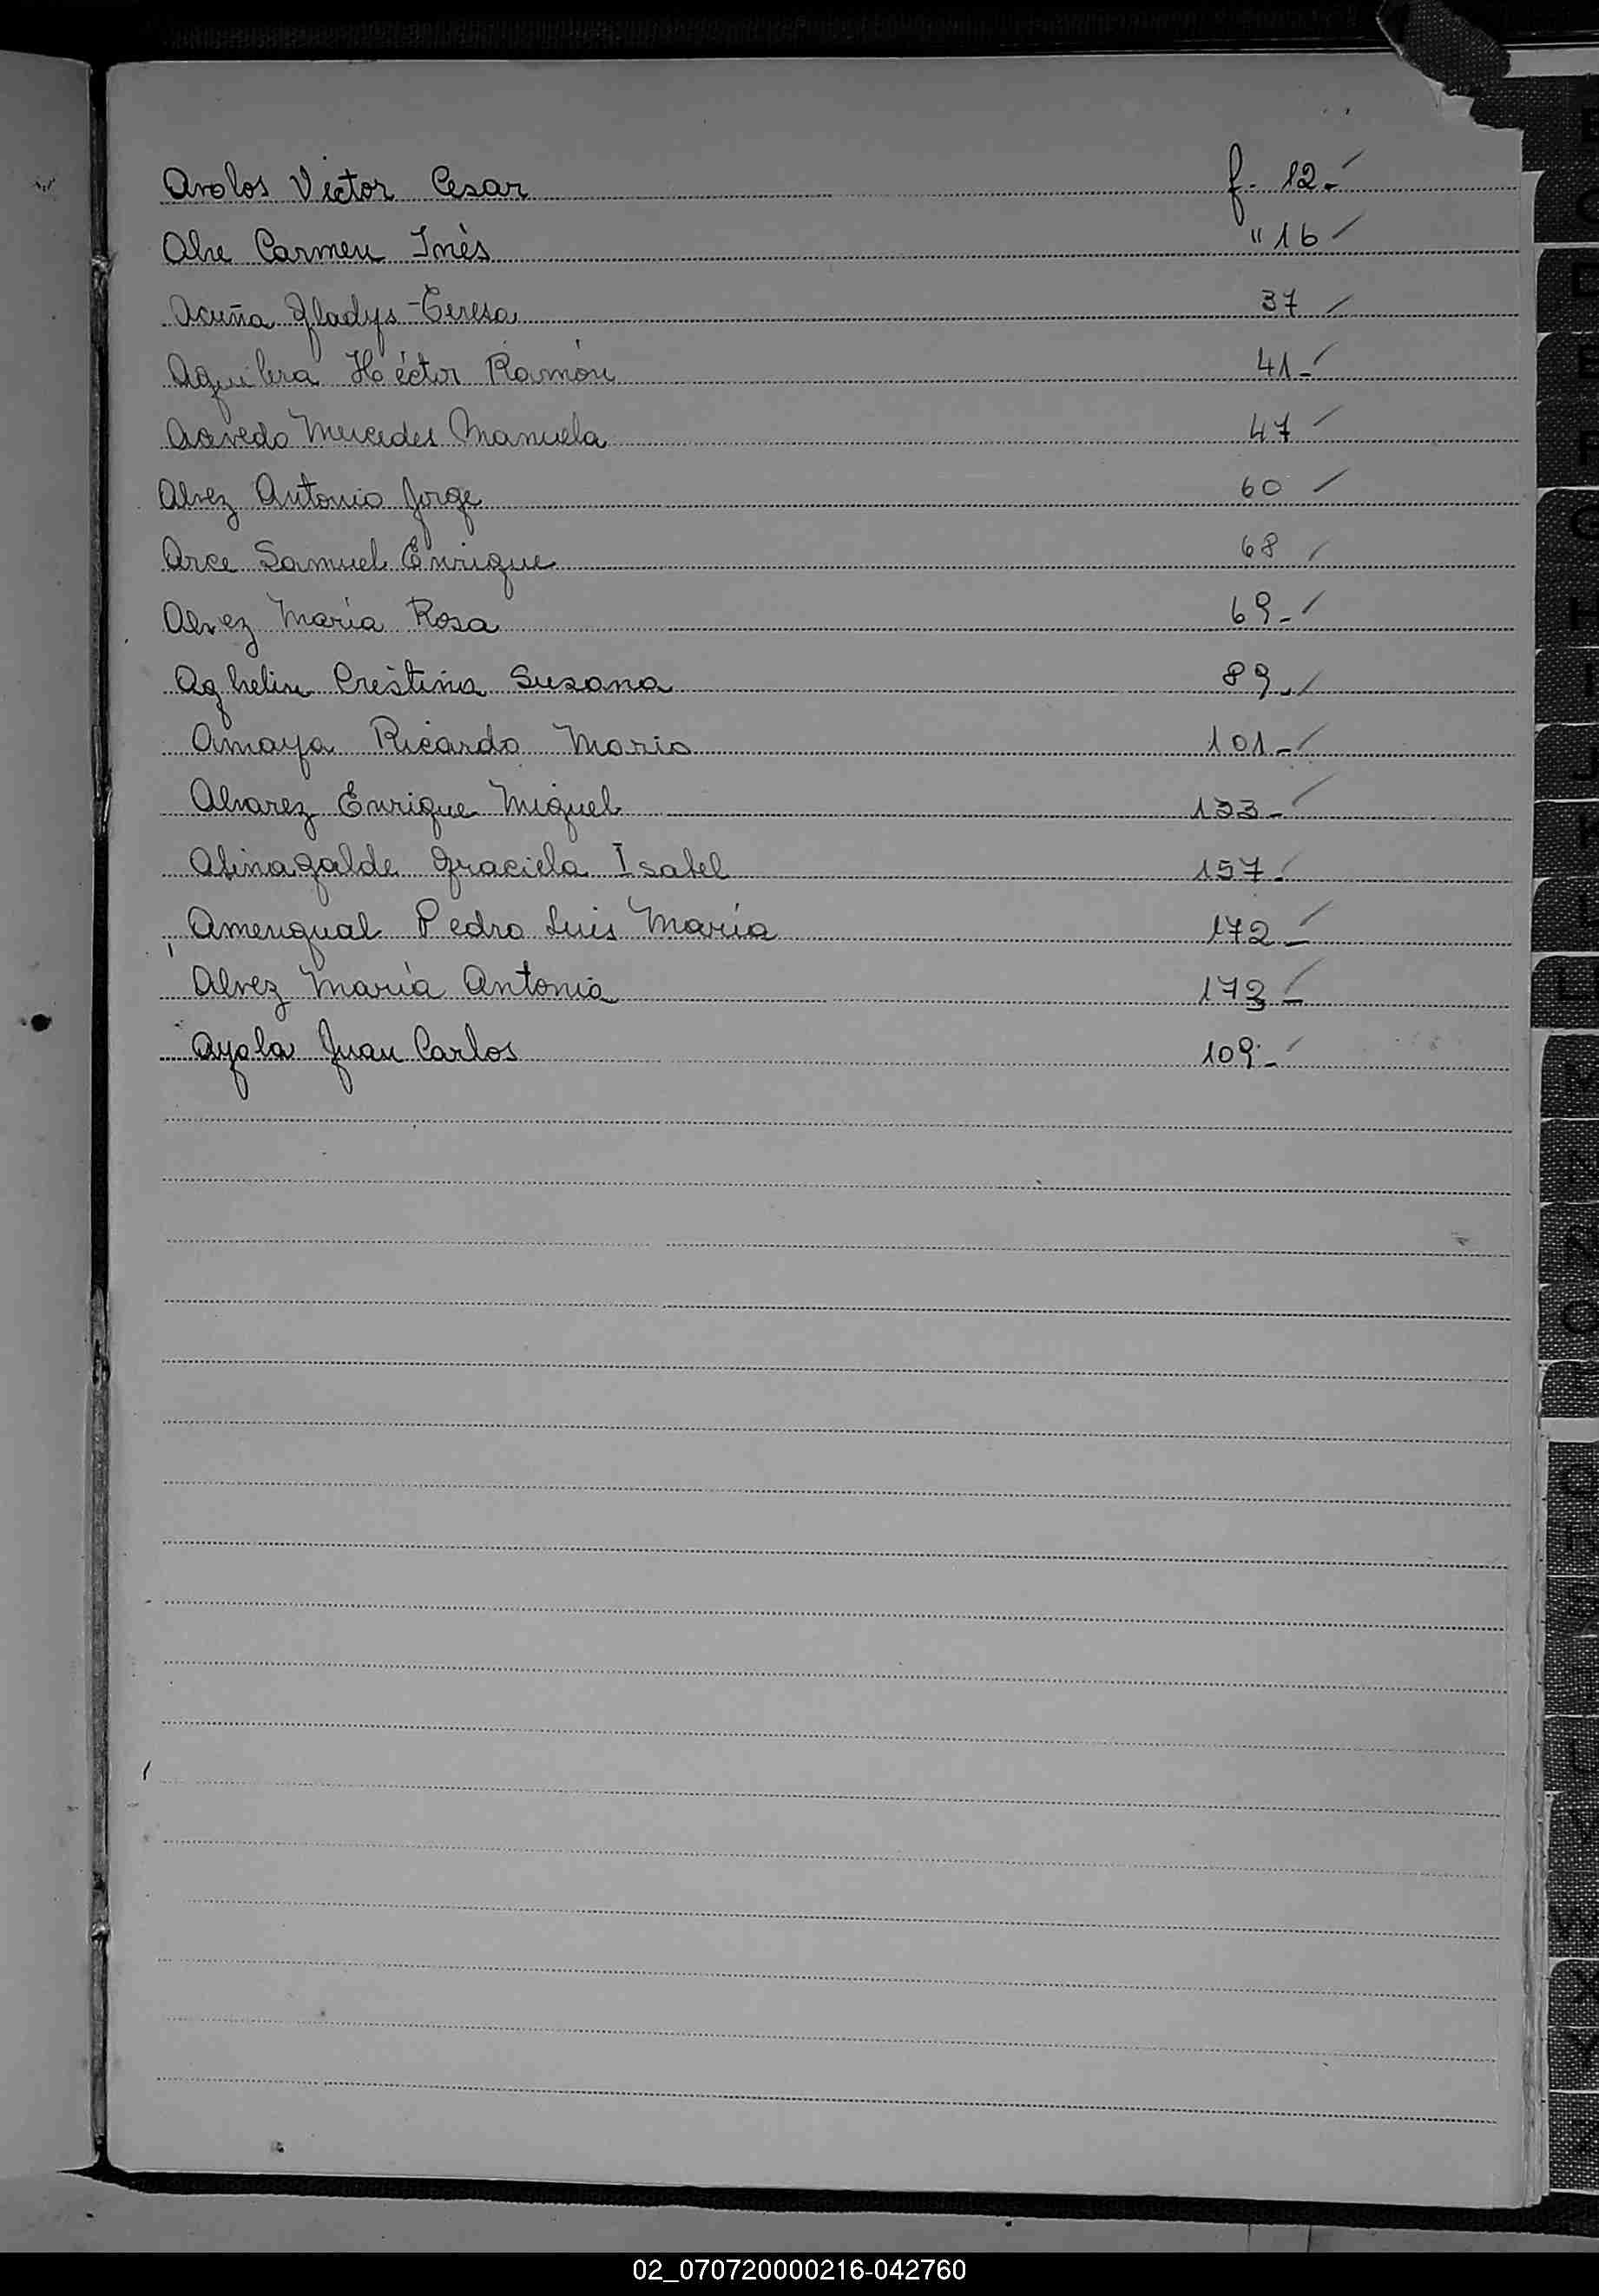 Avolos Victor Cesar f. 12.-
Alve Carmen Inés " 16
Acuña Gladys Teresa 37
Aguilera Héctor Ramón 41-
Acevedo Mercedes Manuela 47
Alvez Antonio Jorge 60
Arce Samuel Enrique 68
Alvez María Rosa 69-
Aghelin Cristina Susana 89-
Amaya Ricardo Mario 101-
Alvarez Enrique Miguel 133-
Graciela Isabel 157-
Amengual Pedro Luis María 172-
Alvez María Antonia 173-
Ayala Juan Carlos 109-
02_070720000216-042760